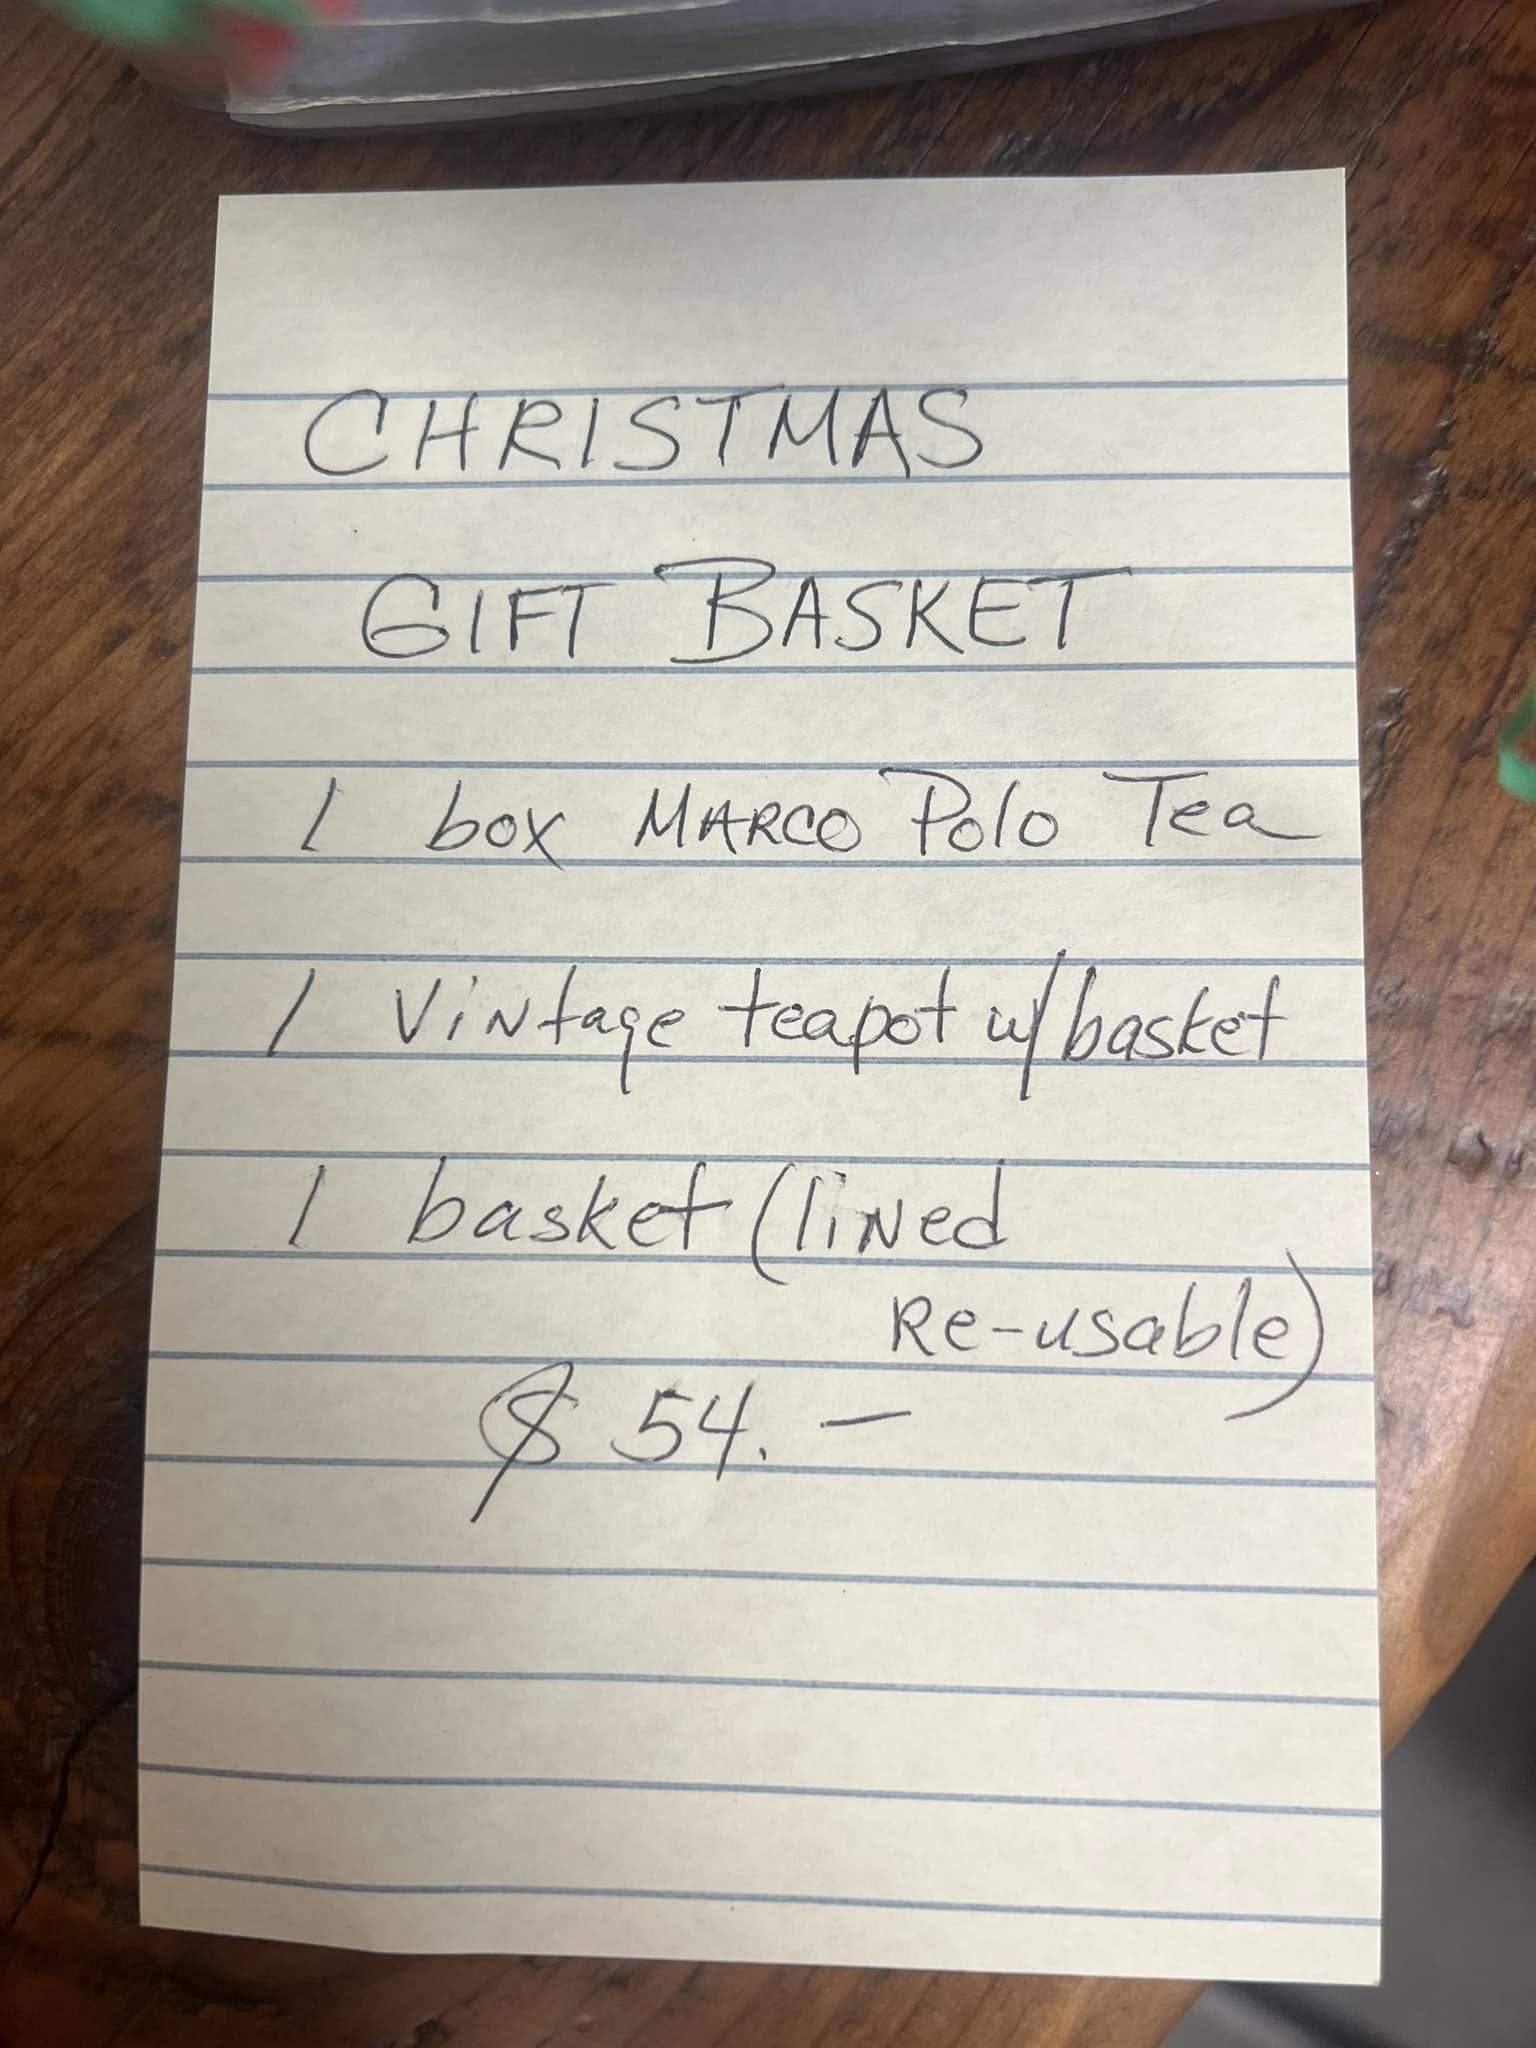 CHRISTMAS
GIFT BASKET
1 box MARCO Polo Tea
1 Vintage teapot w/basket
1 basket (lined
Re-usable)
$ 54. —